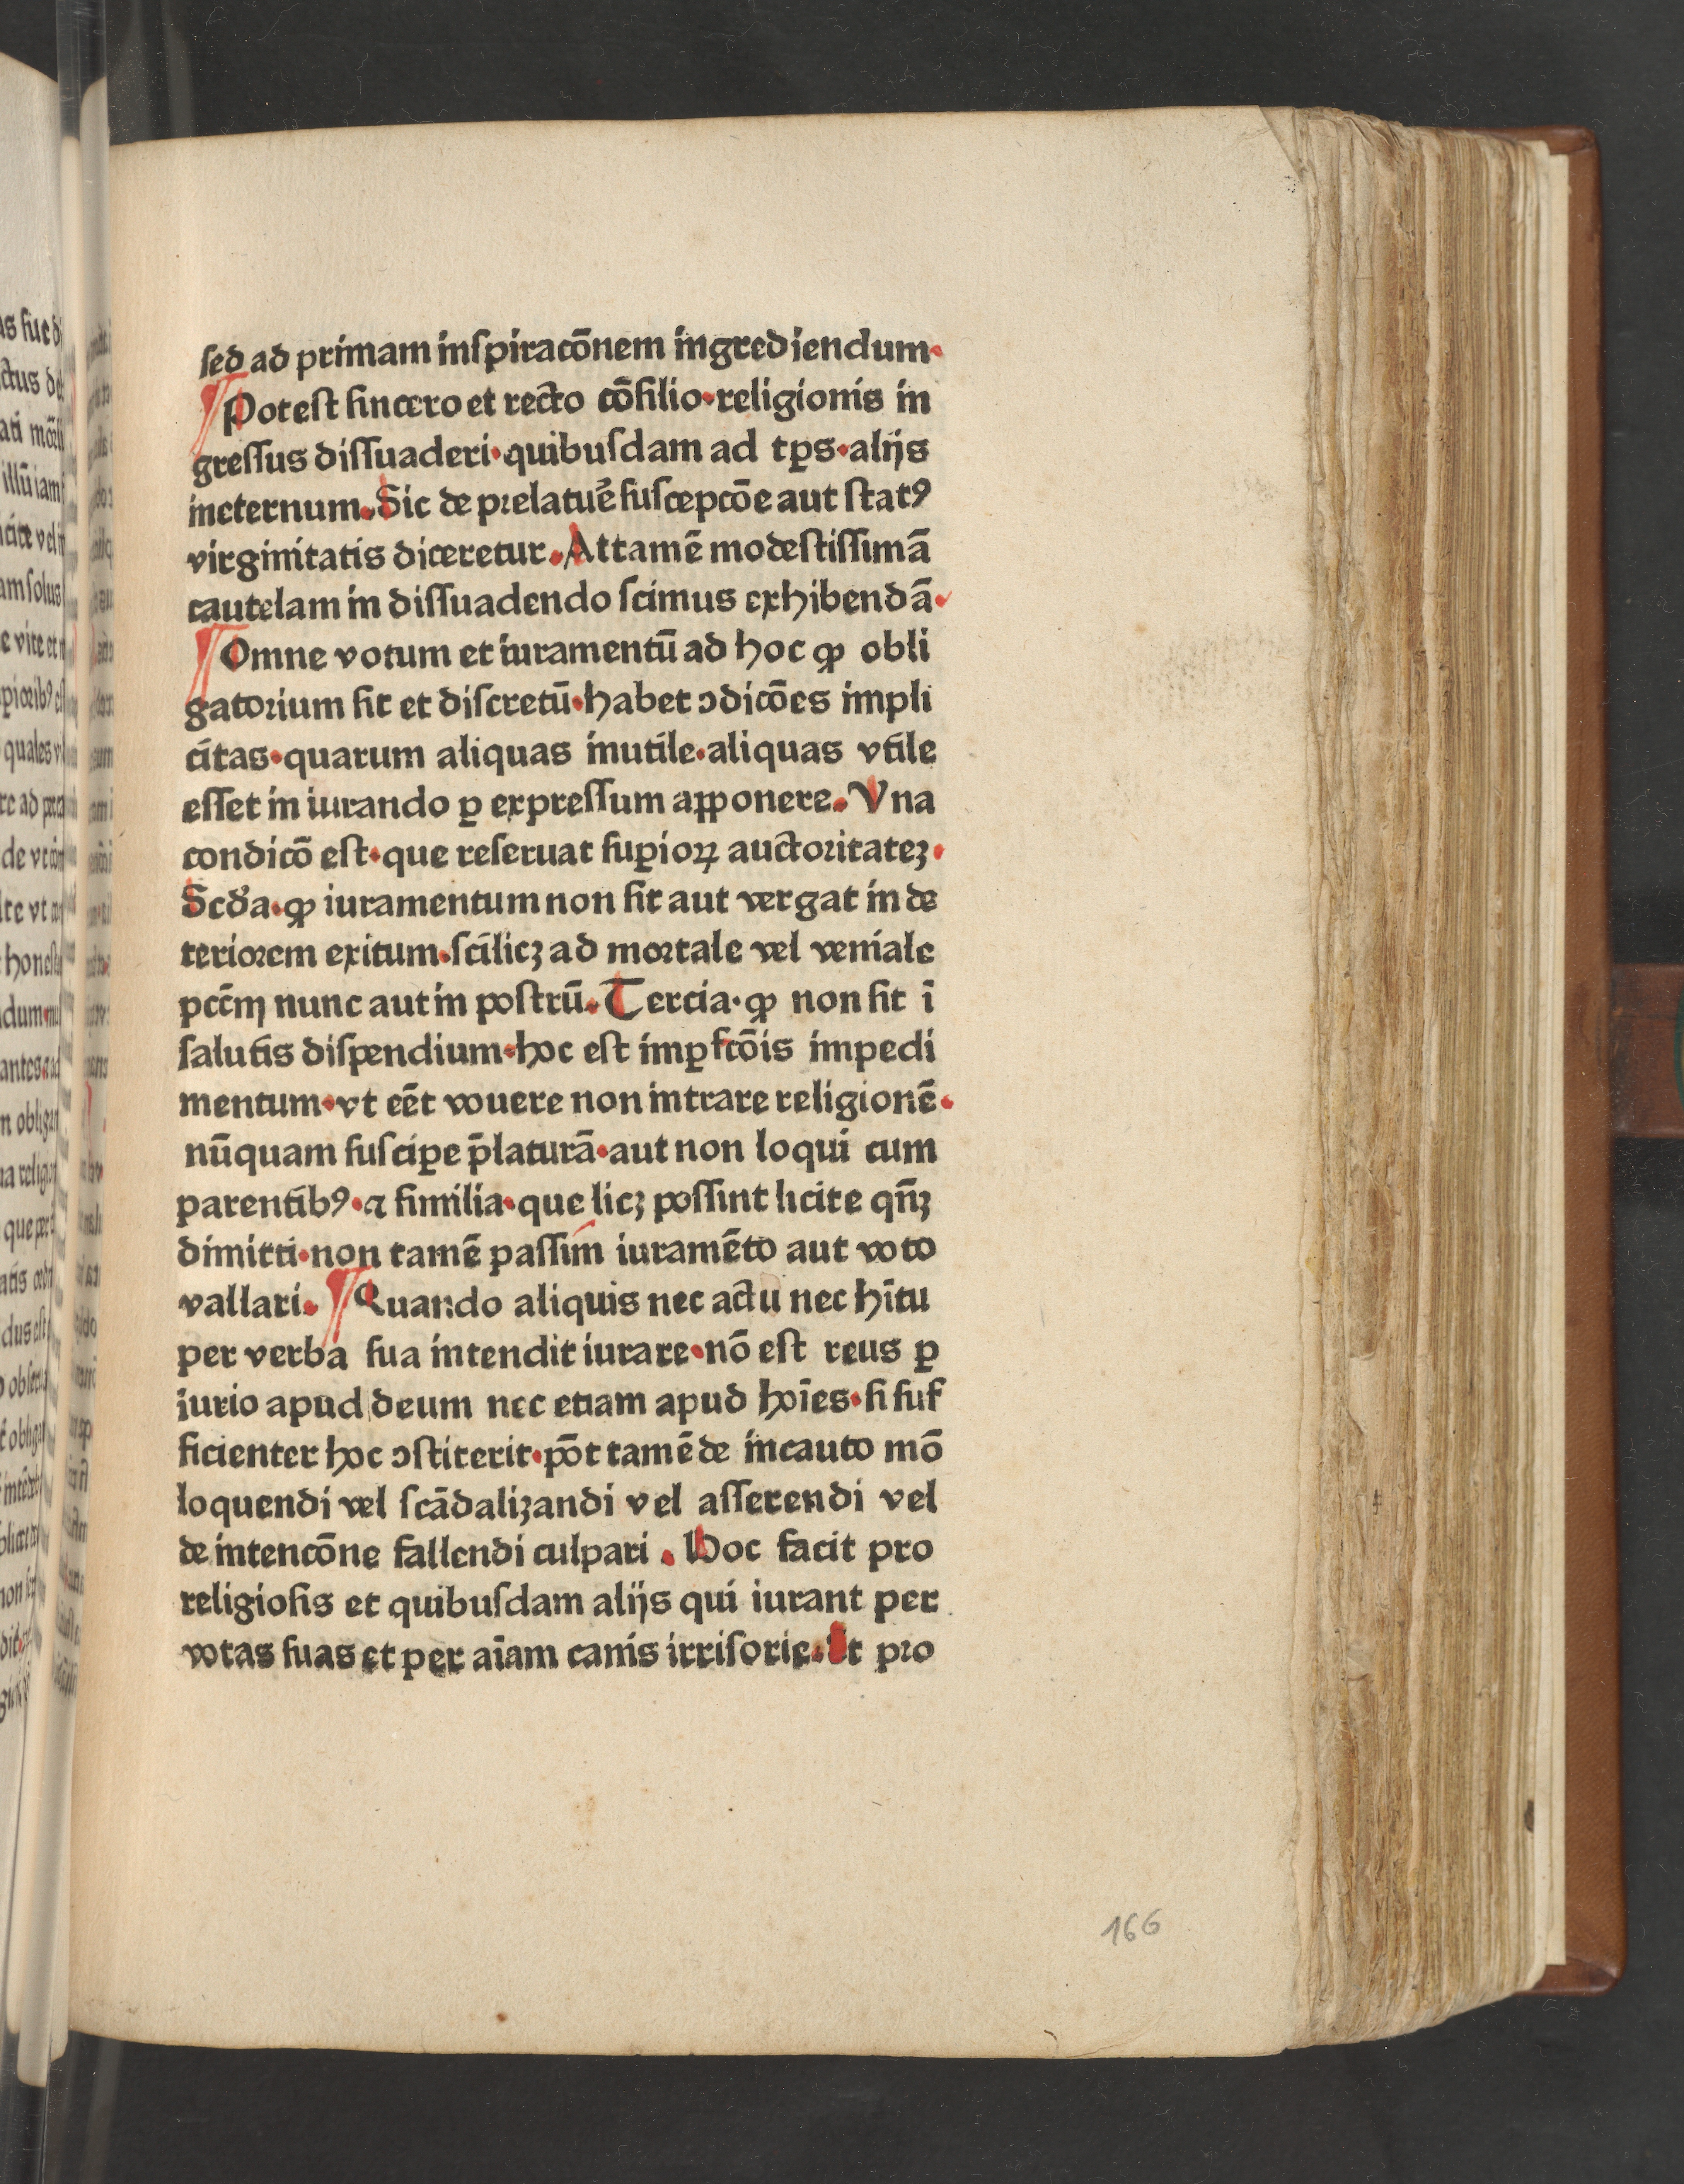 sed ad primam inſpiracōnem ingrediendum·
¶ Poteſt ſincero et recto cōſilio·religionis in
greſſus diſſuaderi·quibuſdam ad tꝑs·alijs
ineternum. Sic de prelatuꝭ ſuſcepcōe aut ſtatꝰ
virginitatis diceretur. Attamē modeſtiſſimā
cautelam in diſſuadendo ſcimus exhibendā·
¶ Omne votum et iuramentū ad hoc ꝙ obli
gatorium ſit et diſcretū·habet ↄdicōes impli
citas·quarum aliquas inutile·aliquas vtile
eſſet in iurando ꝑ expreſſum apponere. Vna
condicō eſt·que reſeruat ſuꝑioꝝ auctoritateꝫ·
Scd'a·ꝙ iuramentum non ſit aut vergat in de
teriorem exitum·ſcilicꝫ ad mortale vel veniale
pccm̄ nunc aut in poſtrū. Tercia·ꝙ non ſit ī
ſalutis diſpendium·hoc eſt imꝑfcōis impedi
mentum·vt eēt vouere non intrare religionē·
nūquam ſuſciꝑe p̄laturā·aut non loqui cum
parentibꝰ·⁊ ſimilia·que licꝫ poſſint licite qn̄ꝫ
dimitti·non tamē paſſim iuramēto aut voto
vallari. ¶ Quando aliquis nec actu nec hītu
per verba ſua intendit iurare·nō eſt reus ꝑ
iurio apud deum nec etiam apud hoīes·ſi ſuf
ficienter hoc ↄſtiterit·pōt tamē de incauto mō
loquendi vel ſcādalizandi vel aſſerendi vel
de intencōne fallendi culpari . Hoc facit pro
religioſis et quibuſdam alijs qui iurant per
votas ſuas et per aīam canis irriſorie. Et pro
166